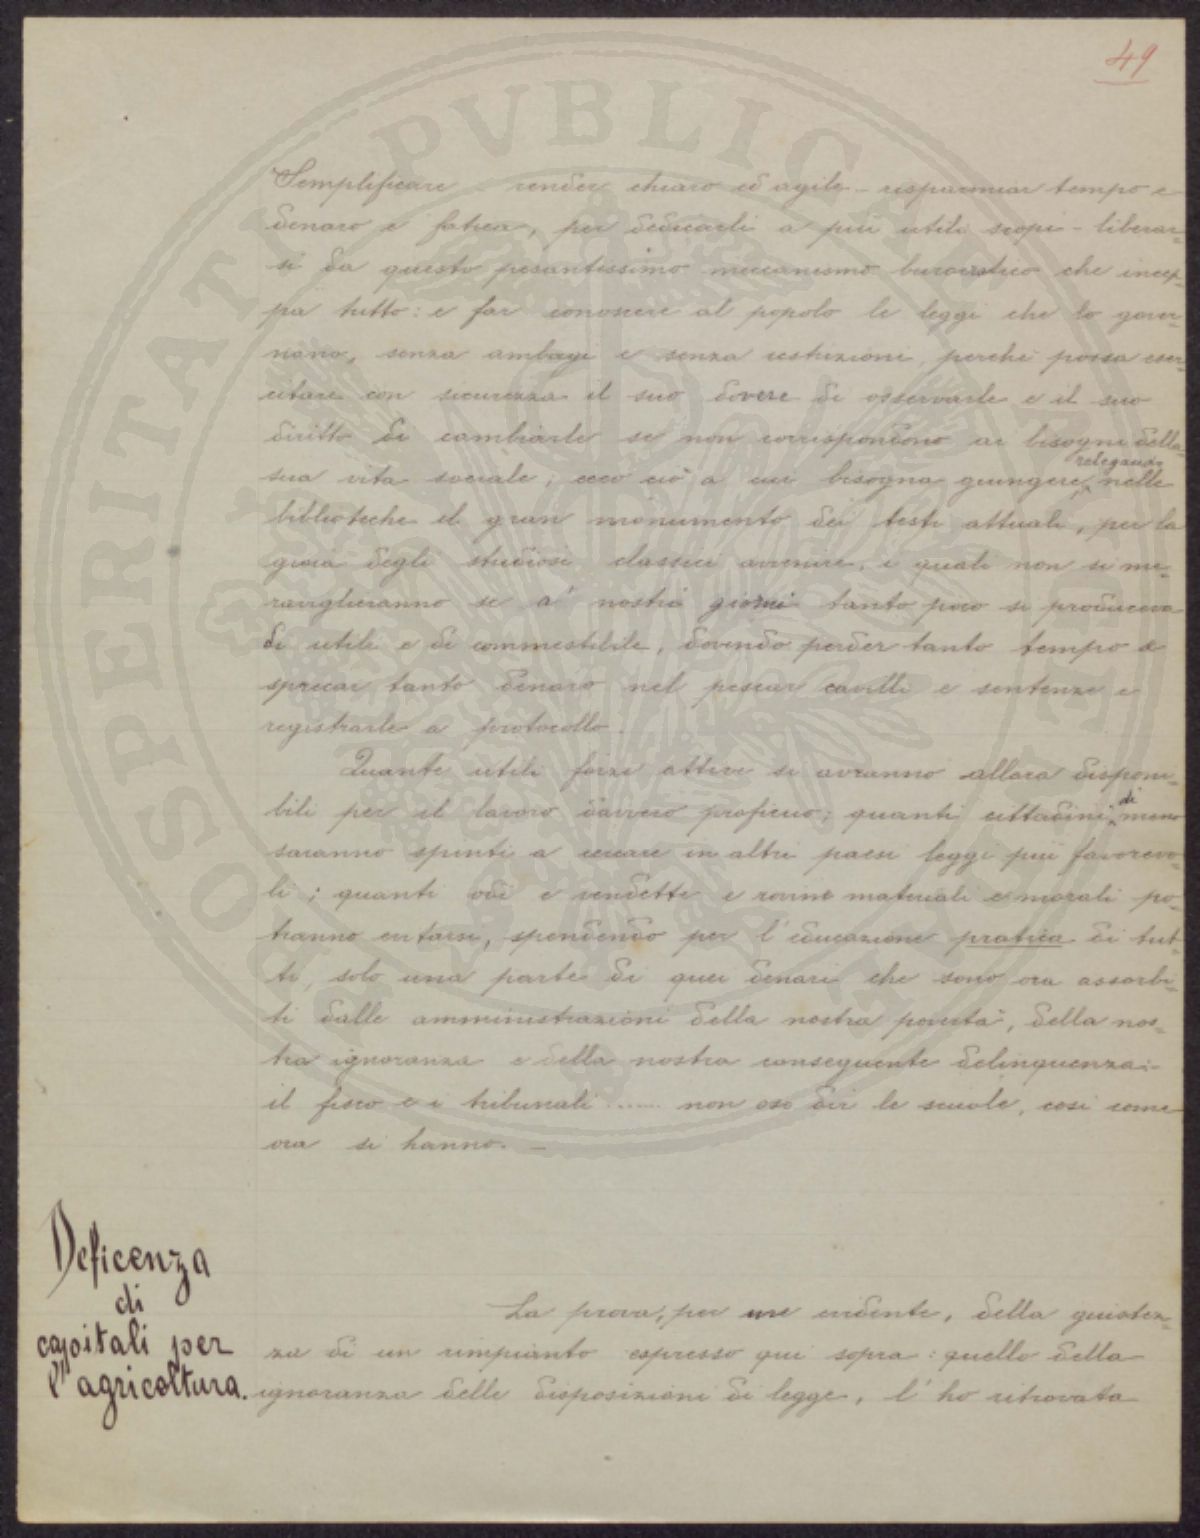 49
Semplificare - render chiaro ed agile - risparmiar tempo e
denaro e fatica, per dedicarli a più utili scopi - liberar=
si da questo pesantissimo meccanismo burocratico che incep=
pa tutto: e far conoscere al popolo le leggi che lo gover=
nano, senza ambagi e senza restrizioni, perchè possa eser=
citare con sicurezza il suo dovere di osservarle e il suo
diritto di cambiarle se non corrispondono ai bisogni della
sua vita sociale; ecco ciò a cui bisogna giungere, relegando nelle
biblioteche il gran monumento dei testi attuali, per la
gioia degli studiosi classici avvenire, i quali non si me=
raviglieranno se a' nostri giorni tanto poco si produceva
di utile e di commestibile, dovendo perder tanto tempo e
sprecar tanto denaro nel pescar cavilli e sentenze e
registrarle a protocollo.
Quante utili forze attive si avranno allora disponi=
bili per il lavoro davvero proficuo; quanti cittadini di meno
saranno spinti a cercare in altri paesi leggi più favorevo=
li; quanti odi e vendette e rovine materiali e morali po=
tranno evitarsi, spendendo per l'educazione pratica di tut=
ti, solo una parte di quei denari che sono ora assorbi=
ti dalle amministrazioni della nostra povertà, della nos=
tra ignoranza e della nostra conseguente delinquenza:-
il fisco e i tribunali ...... non oso dir le scuole, così come
ora si hanno. -
Deficenza
di
capitali per
l'agricoltura.
La prova, per me evidente, della giustez=
za di un rimpianto espresso qui sopra: quello della
ignoranza delle disposizioni di legge, l'ho ritrovata
PROSPERITATI PVBLICAE